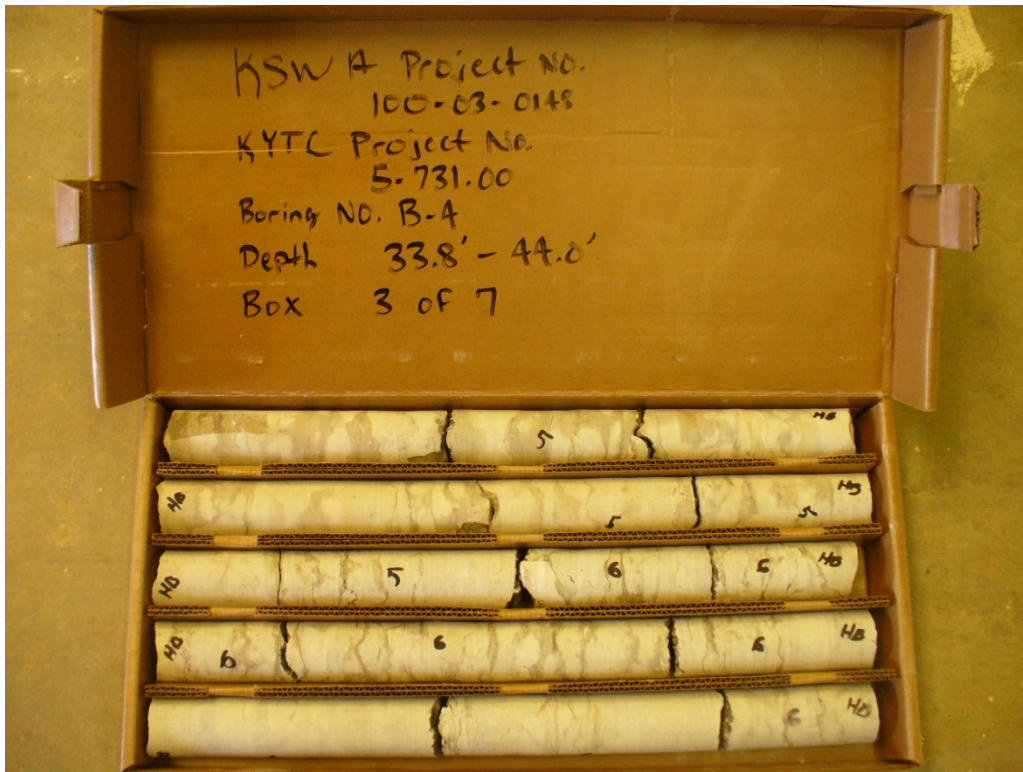 KSWA Project No.
100-03-0148
KYTC Project No.
5-731.00
Boring NO. B-4
Depth 33.8' - 44.0'
Box 3 of 7
5 HB
HB 5 5 HB
HB 5 6 6 HB
HB 6 6 6 HB
6 HB